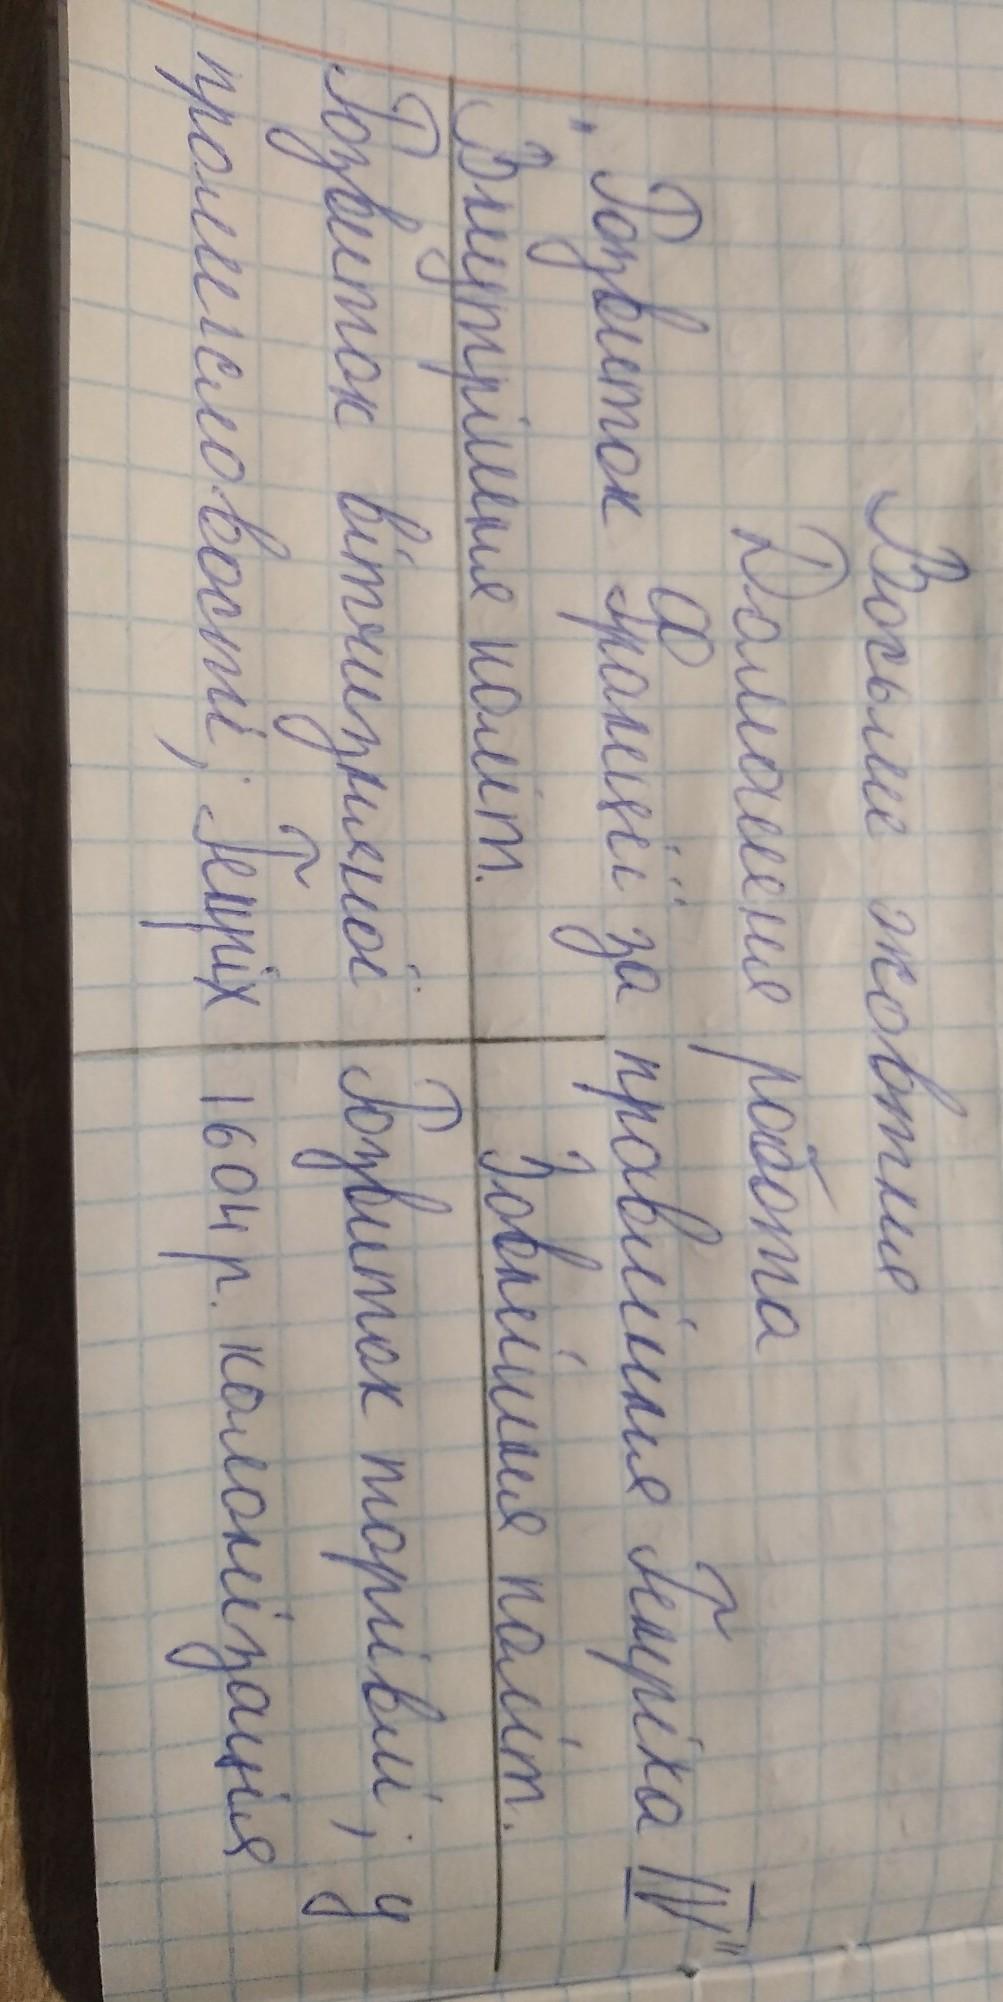 Восьме жовтня
Домашня робота
"Розвиток Франції за правління Генріха IV"
Внутрішня політ. Зовнішня політ.
Розвиток вітчизняної Розвиток торгівлі; у
промисловості; Генріх 1604 р. колонізація